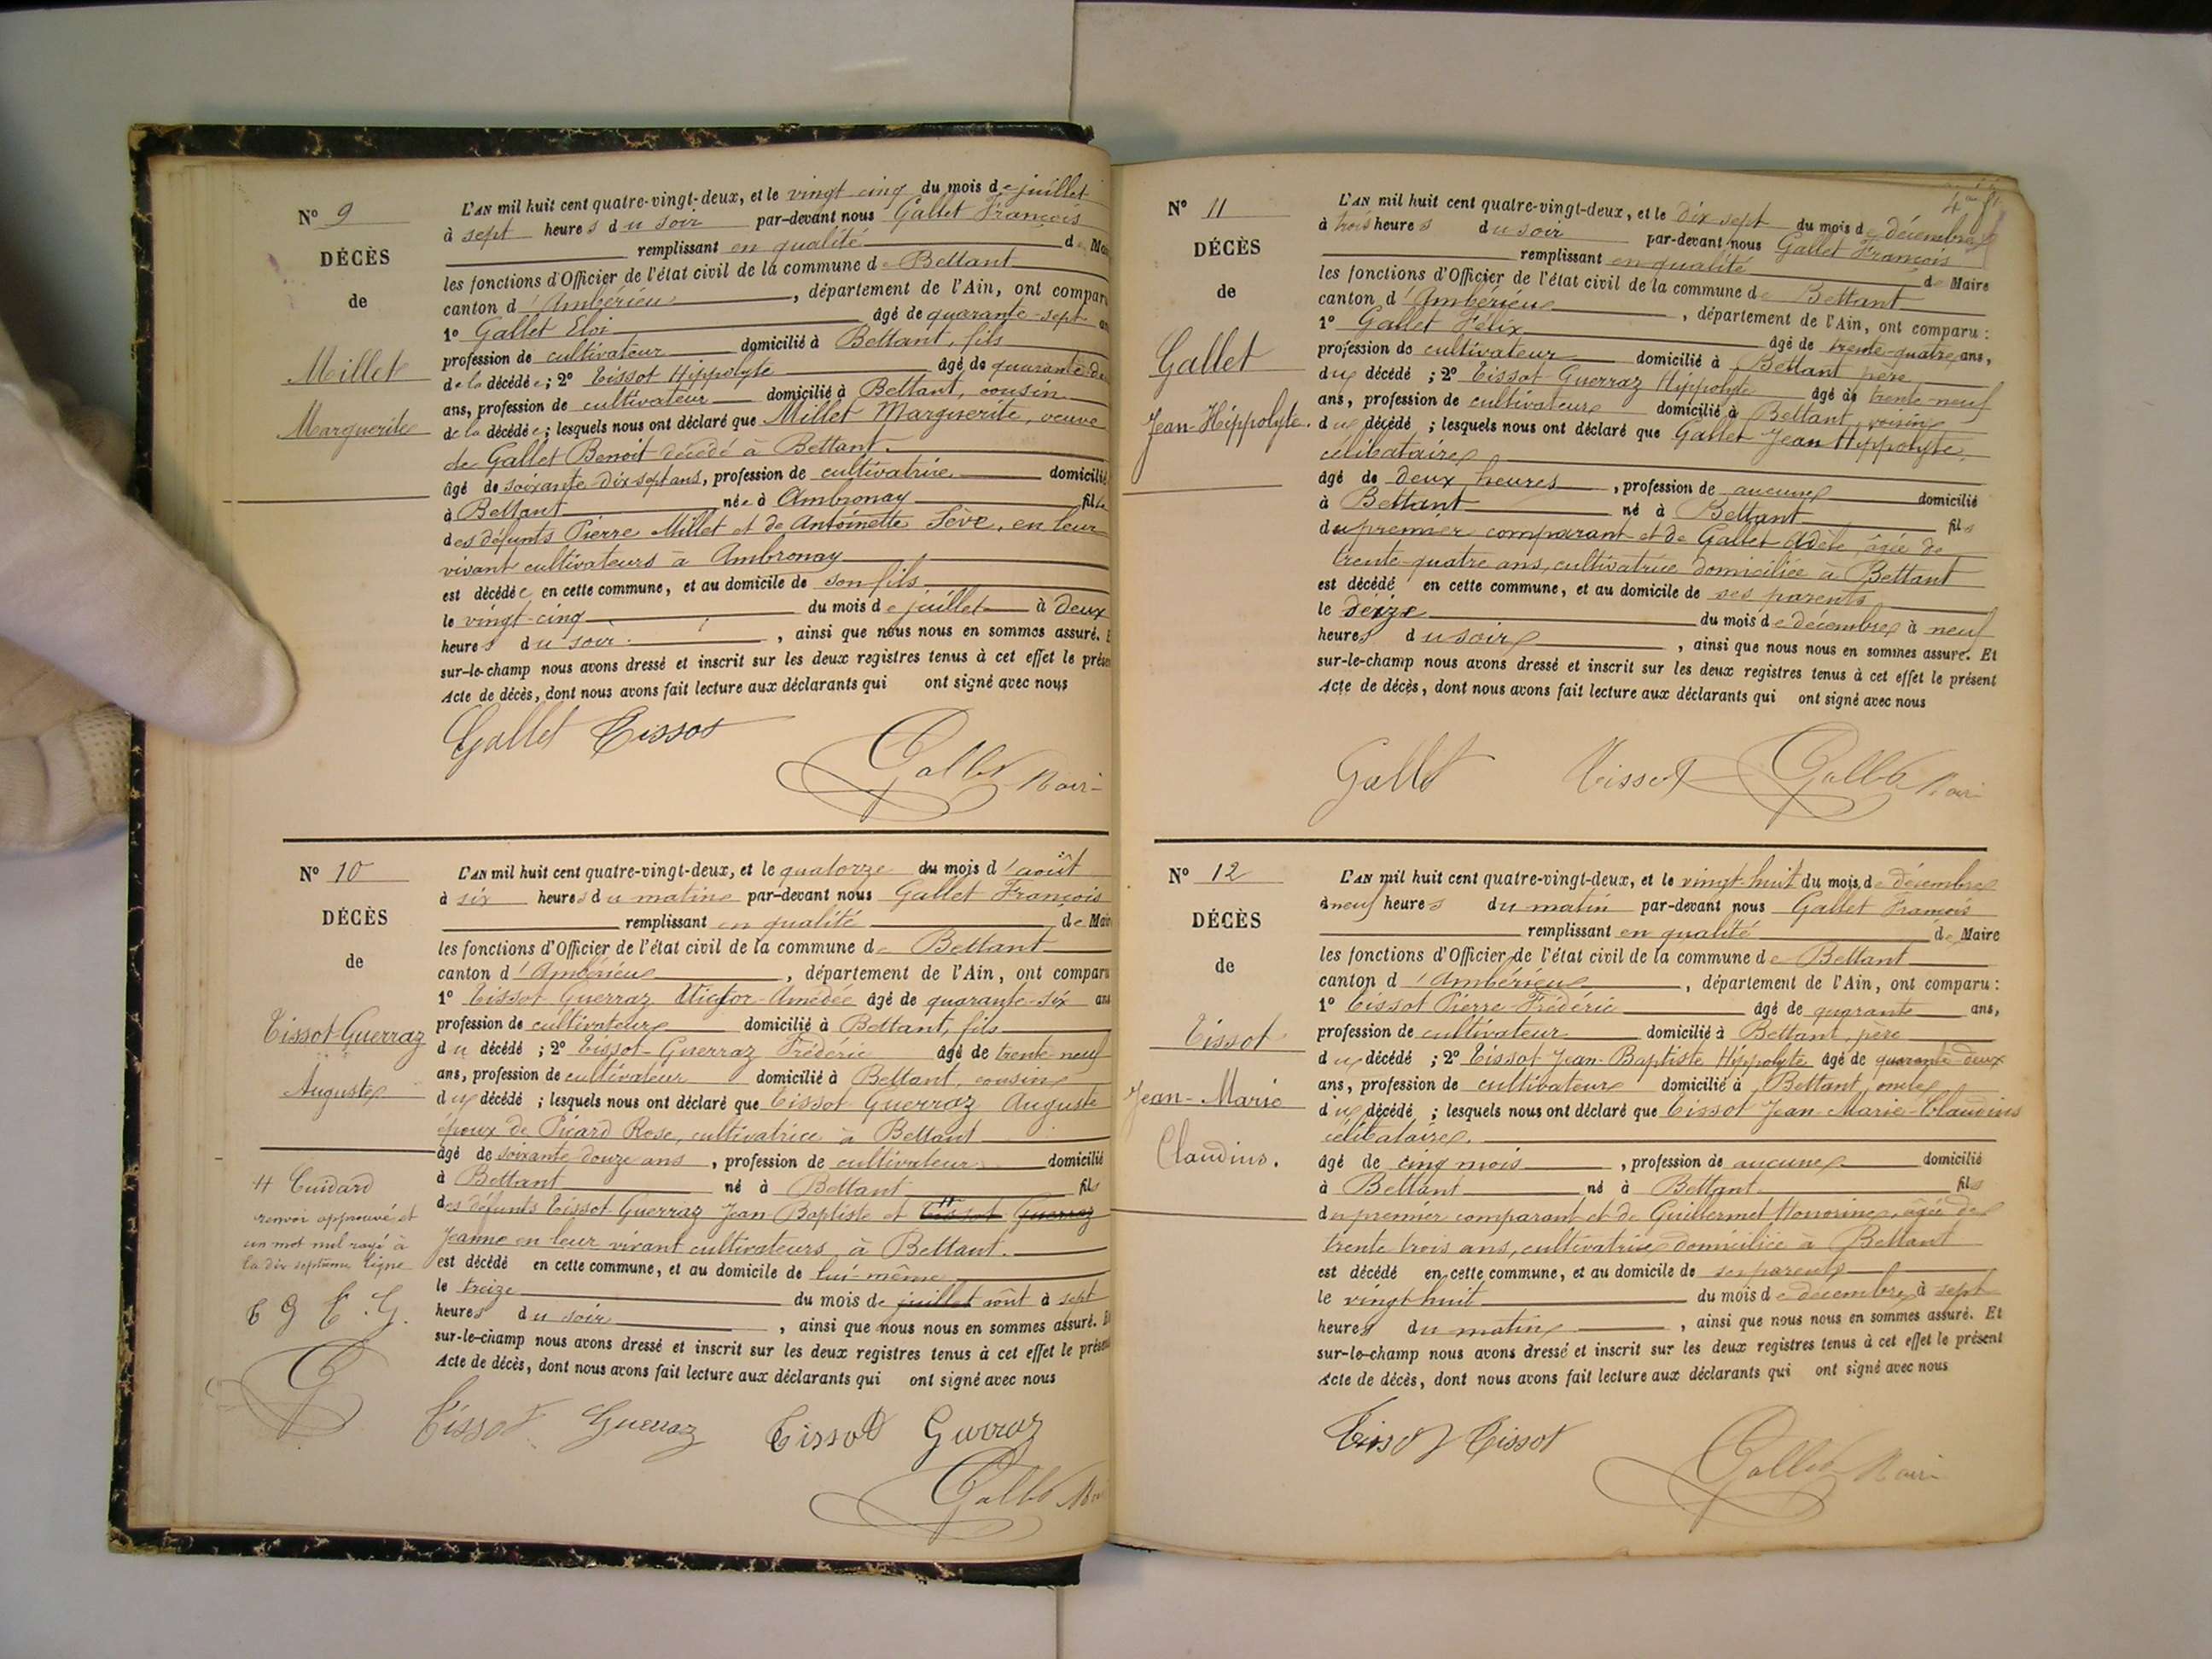 N° 9
DÉCÈS
de
Millet
Marguerite
L'AN mil huit cent quatre-vingt-deux, et le vingt cinq du mois de juillet
à sept heures du soir par-devant nous Gallet François
remplissant en qualité de Mai
les fonctions d'Officier de l'état civil de la commune de Bettant
canton d'Ambérieu, département de l'Ain, ont compar
1° Gallet Eloi âgé de quarante-sept an
profession de cultivateur domicilié à Bettant, fils
de la décédée; 2° Tissot Hippolyte âgé de quarante
ans, profession de cultivateur domicilié à Bettant, cousin
de la décédée; lesquels nous ont déclaré que Millet Marguerite, veuve
de Gallet Benoit décédé à Bettant.
âgé de soixante-dix sept ans, profession de cultivatrice domicilié
à Bettant née à Ambronay fille
des défunts Pierre Millet et de Antoinette Sève, en leur
vivant cultivateurs à Ambronay
est décédée en cette commune, et au domicile de son fils
le vingt-cinq du mois de juillet à deux
heures du soir, ainsi que nous nous en sommes assuré. E
sur-le-champ nous avons dressé et inscrit sur les deux registres tenus à cet effet le prése
Acte de décès, dont nous avons fait lecture aux déclarants qui ont signé avec nous
Gallet Tissot
Gallet Maire
N° 10
DÉCÈS
de
Tissot-Guerraz
Auguste
L'AN mil huit cent quatre-vingt-deux, et le quatorze du mois d'août
à six heures du matin par-devant nous Gallet François
remplissant en qualité de Mair
les fonctions d'Officier de l'état civil de la commune de Bettant
canton d'Ambérieu, département de l'Ain, ont comparu
1° Tissot-Guerraz Victor-Amédée âgé de quarante-six ans
profession de cultivateur domicilié à Bettant, fils
du décédé; 2° Tissot-Guerraz Frédéric âgé de trente neuf
ans, profession de cultivateur domicilié à Bettant, cousin
du décédé; lesquels nous ont déclaré que Tissot Guerraz Auguste
époux de Picard Rose, cultivatrice à Bettant
âgé de soixante douze ans, profession de cultivateur domicilié
à Bettant né à Bettant fils
des défunts Tissot-Guerraz Jean-Baptiste et Tissot Guerraz
Jeanne en leur vivant cultivateurs à Bettant.
est décédé en cette commune, et au domicile de lui-même
le treize du mois de juillet août à sept
heures du soir, ainsi que nous nous en sommes assuré. E
sur-le-champ nous avons dressé et inscrit sur les deux registres tenus à cet effet le présen
Acte de décès, dont nous avons fait lecture aux déclarants qui ont signé avec nous
# Cuidard
renvoi approuvé et
un mot nul rayé à
la dix septième ligne
T G T. G.
G
Tissot Guerraz Tissot Guerraz
Gallet Mai
N° 11
DÉCÈS
de
Gallet
Jean-Hippolyte.
L'AN mil huit cent quatre-vingt-deux, et le dix sept du mois de décembre
à trois heures du soir par-devant nous Gallet François
remplissant en qualité de Maire
les fonctions d'Officier de l'état civil de la commune de Bettant
canton d'Ambérieu, département de l'Ain, ont comparu :
1° Gallet Félix âgé de trente-quatre ans,
profession de cultivateur domicilié à Bettant père
du décédé; 2° Tissot-Guerraz Hippolyte âgé de trente-neuf
ans, profession de cultivateur domicilié à Bettant, voisin
du décédé; lesquels nous ont déclaré que Gallet Jean Hippolyte,
célibataire
âgé de deux heures, profession de aucune domicilié
à Bettant né à Bettant fils
du premier comparant et de Gallet Adèle, âgée de
trente-quatre ans, cultivatrice domiciliée à Bettant
est décédé en cette commune, et au domicile de ses parents
le du mois de décembre à neuf
heures du soir, ainsi que nous nous en sommes assuré. Et
sur-le-champ nous avons dressé et inscrit sur les deux registres tenus à cet effet le présent
Acte de décès, dont nous avons fait lecture aux déclarants qui ont signé avec nous
Gallet Tissot Gallet Maire
N° 12
DÉCÈS
de
Tissot
Jean-Marie
Claudius.
L'AN mil huit cent quatre-vingt-deux, et le vingt-huit du mois de décembre
à neuf heures du matin par-devant nous Gallet François
remplissant en qualité de Maire
les fonctions d'Officier de l'état civil de la commune de Bettant
canton d'Ambérieu, département de l'Ain, ont comparu :
1° Tissot Pierre-Frédéric âgé de quarante ans,
profession de cultivateur domicilié à Bettant, père
du décédé; 2° Tissot Jean-Baptiste Hippolyte âgé de quarante deux
ans, profession de cultivateur domicilié à Bettant, oncle
du décédé; lesquels nous ont déclaré que Tissot Jean-Marie-Claudius
célibataire.
âgé de cinq mois, profession de aucune domicilié
à Bettant né à Bettant fils
du premier comparant et de Guillermet Honorine, âgée de
trente trois ans, cultivatrice domiciliée à Bettant
est décédé en cette commune, et au domicile de ses parents
le vingt huit du mois de décembre à sept
heures du matin, ainsi que nous nous en sommes assuré. Et
sur-le-champ nous avons dressé et inscrit sur les deux registres tenus à cet effet le présent
Acte de décès, dont nous avons fait lecture aux déclarants qui ont signé avec nous
Tissot Tissot
Gallet Maire